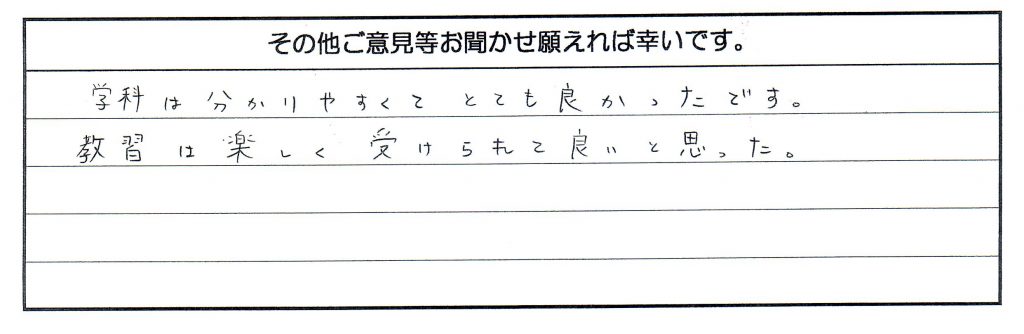 その他ご意見等お聞かせ願えれば幸いです。
学科は分かりやすくてとても良かったです。
教習は楽しく受けられて良いと思った。